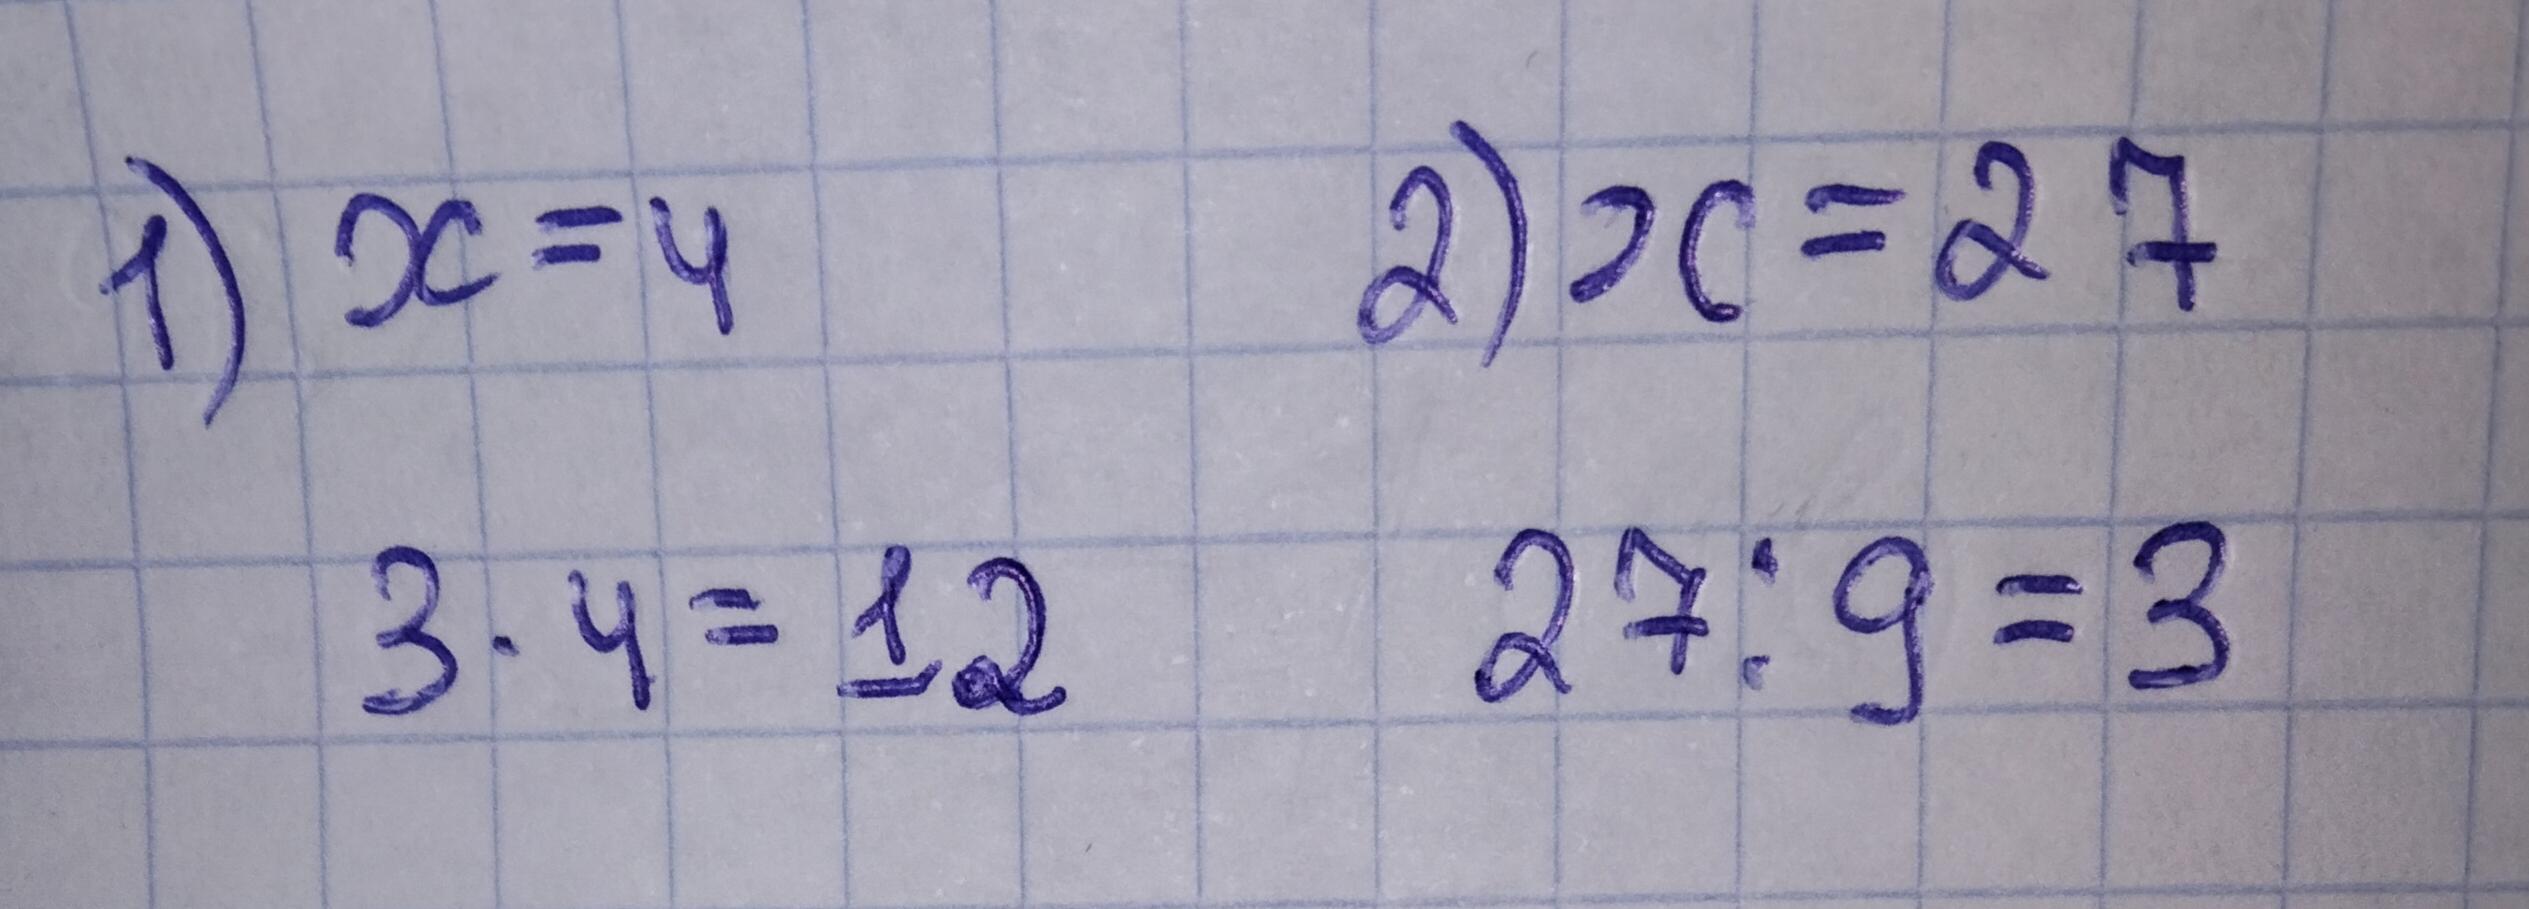 1) x = 4
3 · 4 = 12
2) x = 27
27 : 9 = 3